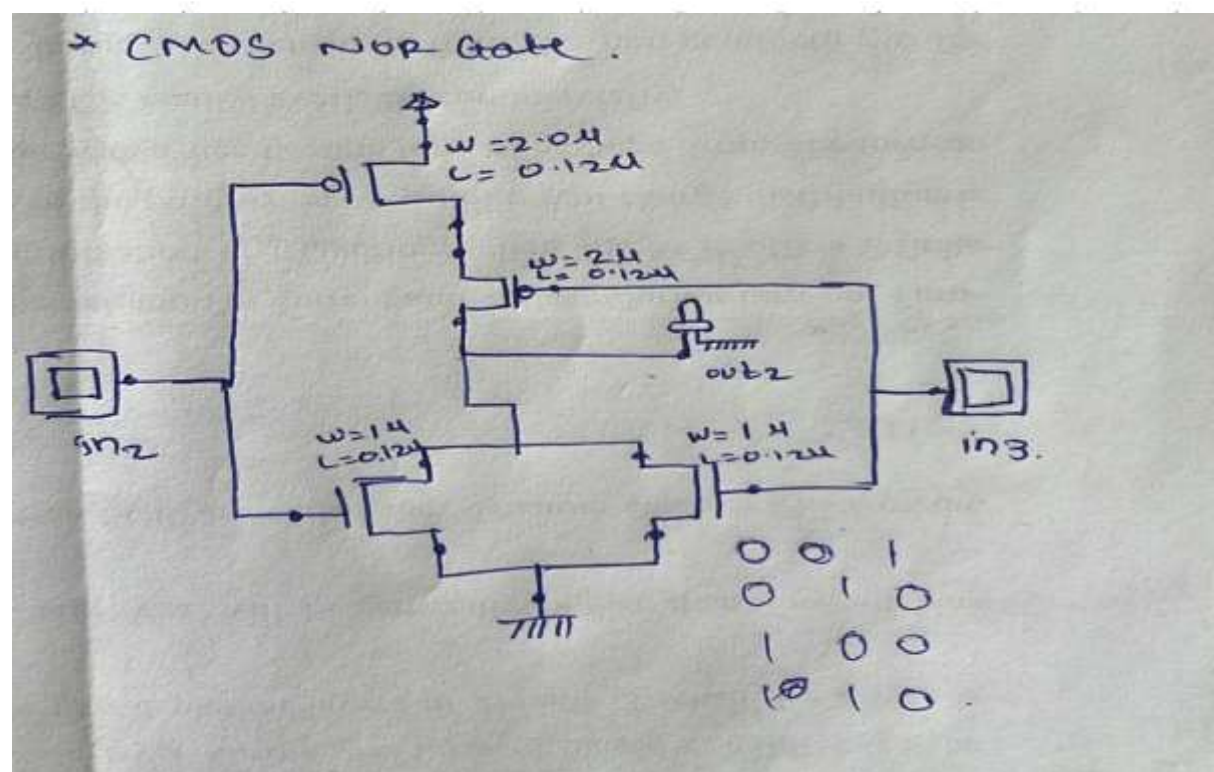 * CMOS NOR Gate.
W=2.0µ
L=0.12µ
W=2µ
L=0.12µ
out2
in2
W=1µ
L=0.12µ
W=1µ
L=0.12µ
in3.
0 0 1
0 1 0
1 0 0
1 1 0.